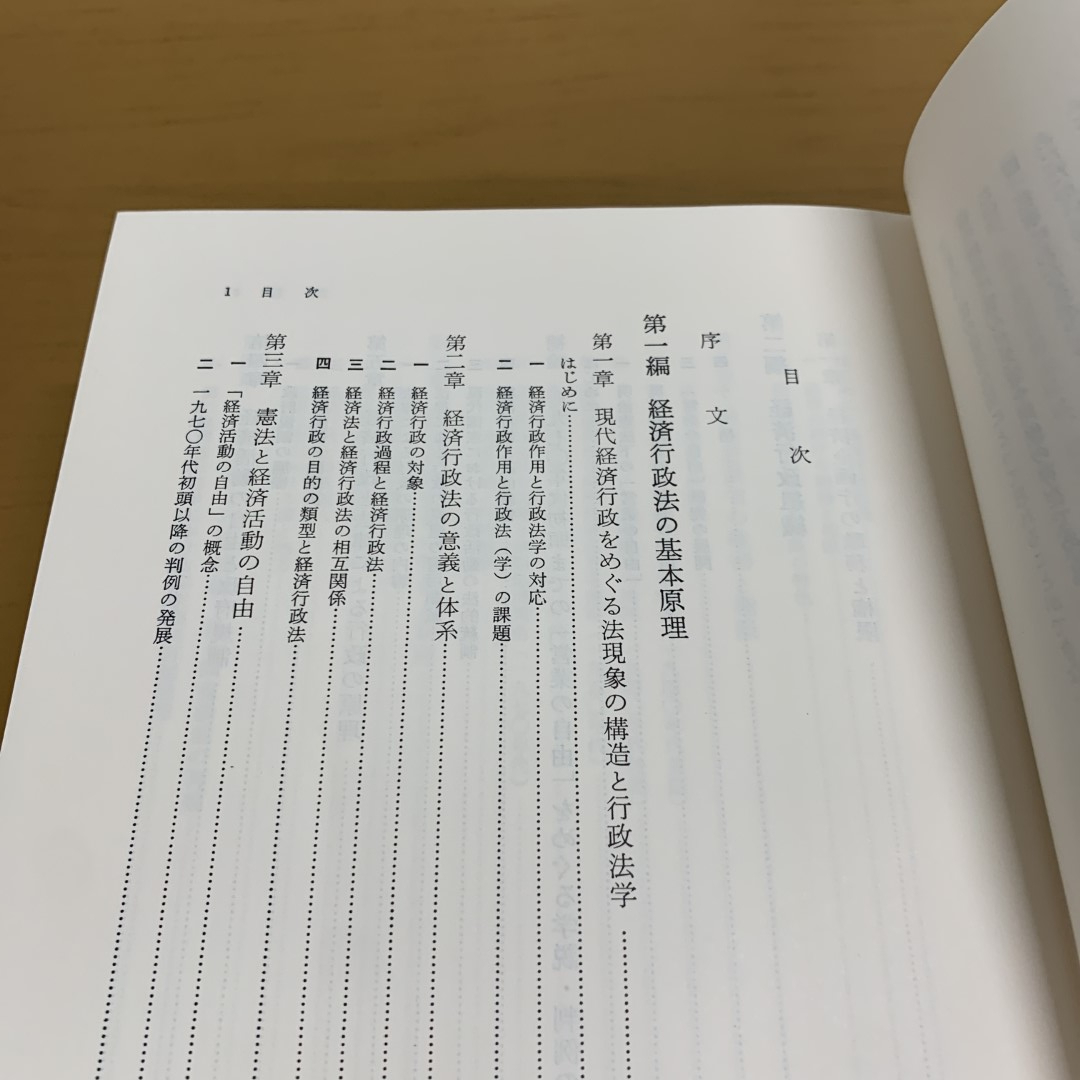 目次
序文
第一編 経済行政法の基本原理
第一章 現代経済行政をめぐる法現象の構造と行政法学
はじめに
一 経済行政作用と行政法学の対応
二 経済行政作用と行政法（学）の課題
第二章 経済行政法の意義と体系
一 経済行政の対象
二 経済行政過程と経済行政法
三 経済法と経済行政法の相互関係
四 経済行政の目的の類型と経済行政法
第三章 憲法と経済活動の自由
一 「経済活動の自由」の概念
二 一九七〇年代初頭以降の判例の発展
1 目次